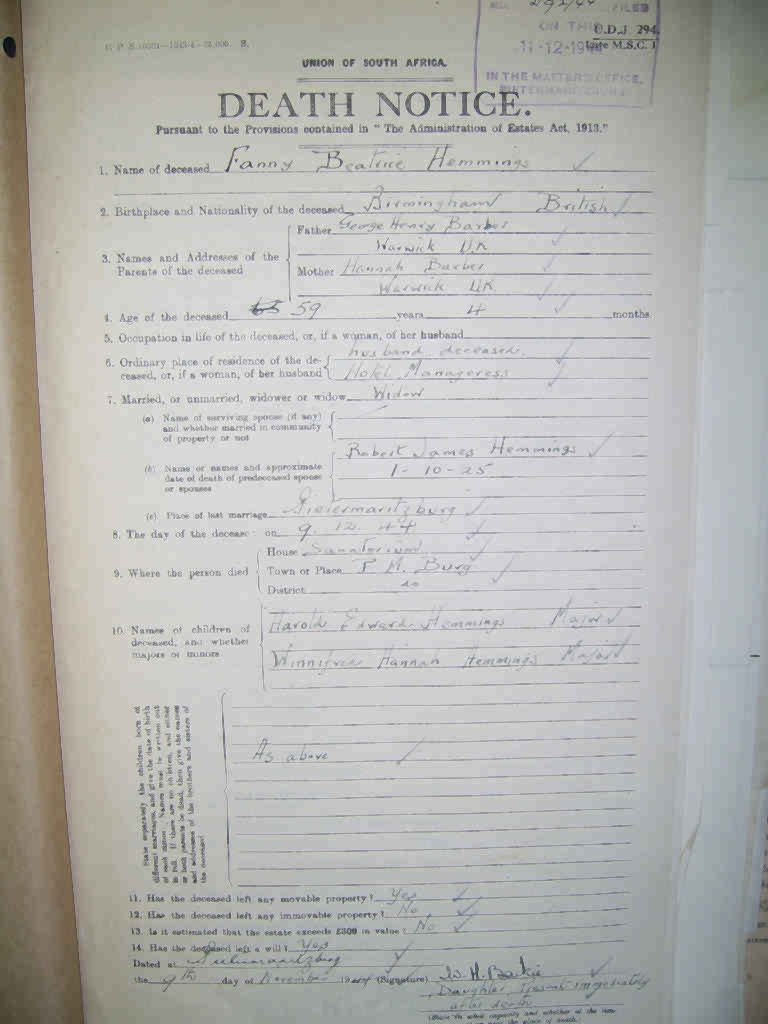 292/44
FILED
ON THIS
11-12-1944
IN THE MASTER'S OFFICE,
PIETERMARITZBURG
U.D.J. 294.
(late M.S.C. 1
S.
UNION OF SOUTH AFRICA.
DEATH NOTICE.
Pursuant to the Provisions contained in "The Administration of Estates Act, 1913."
1. Name of deceased Fanny Beatrice Hemmings
2. Birthplace and Nationality of the deceased Birmingham British
3. Names and Addresses of the Parents of the deceased
Father George Henry Barber
Warwick U.K
Mother Hannah Barber
Warwick U.K.
4. Age of the deceased 59 years 4 months
5. Occupation in life of the deceased, or, if a woman, of her husband
husband deceased.
6. Ordinary place of residence of the de-
ceased, or, if a woman, of her husband Hotel Manageress
7. Married, or unmarried, widower or widow Widow
(a) Name of surviving spouse (if any)
and whether married in community
of property or not
Robert James Hemmings
(b) Name or names and approximate
date of death of predeceased spouse
or spouses
1-10-25
(c) Place of last marriage Pietermaritzburg
8. The day of the decease on 9. 12. 44
9. Where the person died
House Sanatorium
Town or Place P.M. Burg
District do
10. Names of children of
deceased, and whether
majors or minors
Harold Edward Hemmings Major
Winnifred Hannah Hemmings Major
State separately the children born of
different marriages, and give the date of birth
of each minor. Names must be written out
in full. If there are no children, and either
or both parents be dead, then give the names
and addresses of the brothers and sisters of
the deceased
As above
11. Has the deceased left any movable property? Yes
12. Has the deceased left any immovable property? No
13. Is it estimated that the estate exceeds £300 in value? No
14. Has the deceased left a will? Yes
Dated at Pietermaritzburg
the 9th day of November 1944 (Signature) W. H.
Daughter, present immediately
after death